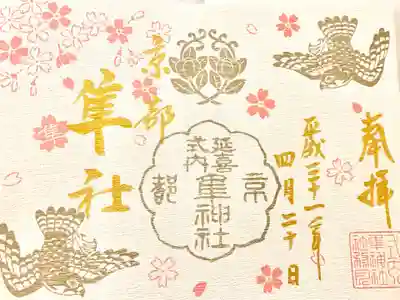 奉拝
平成三十一年
四月二十日
延喜
式内
隼神社
京都
京都
隼社
隼